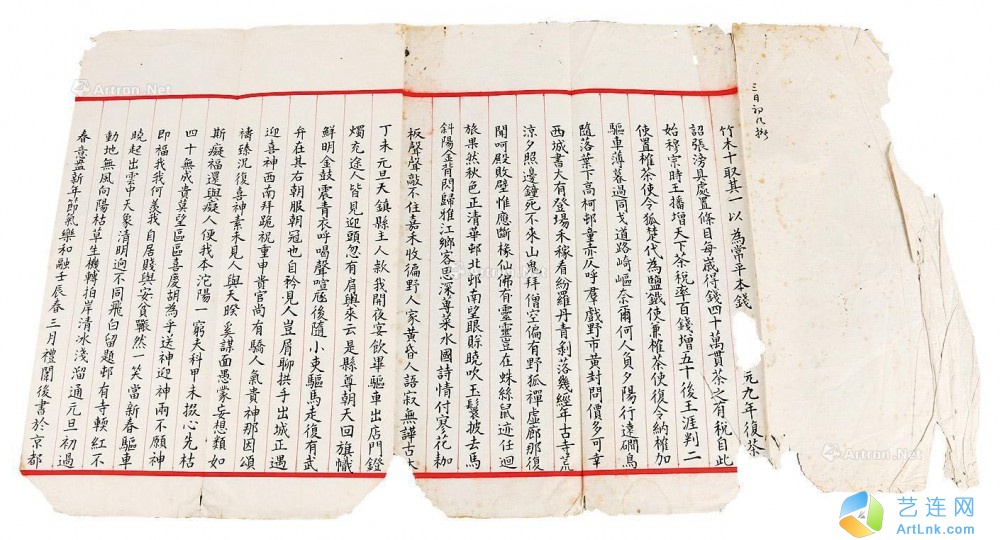 三日初八抄
元九年復茶
竹木十取其一以為常平本錢
詔張滂具處置條目每歲得錢四十萬貫茶之有稅自此
始穆宗時王播增天下茶稅率百錢增五十後王涯判二
使置榷茶使令狐楚代為鹽鐵使兼榷茶使復令納榷加
驅車薄暮過同戈道路崎嶇奈爾何人負夕陽行達閼鳥
隨落葉下高柯邨童亦仄呼羣戲野市黃封問價多可幸
西城書大有登場禾稼看紛羅丹青剥落幾經年古寺荒
涼夕照邊鐘死不来山鬼拜僧空偏有野狐禪虛廊那復
聞呵殿敗壁惟應斷椽仙佛有靈靈豈在蛛絲鼠迹任迴
旅果然秋色正清華邨北邨南望眼賒曉吹玉鬟披去馬
斜陽金背閃歸雅江鄉客思深蓴菜水國詩情付寥花枷
板聲聲敲不住嘉禾收徧野人家黃昏人語寂無譁古
丁未元旦天鎮縣主人款我開夜宴飲畢驅車出店門鐙
燭充途人皆見迎頭忽有肩輿來云是縣尊朝天回旗幟
鮮明金鼓震青衣呼喝聲喧豗後隨小吏驅馬走復有武
弁在其右朝服朝冠也自矜見人豈屑聊拱手出城正遇
迎喜神西南拜跪祝重申貴官尚有驕人氣貴神那因頌
禱臻沉復喜神素未見人與天暌奚謀面愚蒙妄想類如
斯癡福還與癡人便我本沱陽一窮夫科甲未掇心先枯
四十無成貴莫望區區喜慶胡為乎送神迎神兩不願神
即福我我何羨我自居賤與安貧輾然一笑當新春驅車
曉起出雲中天象清明迥不同飛白留題邨有寺輭紅不
動地無風向陽枯草生機轉拍岸清冰淺溜通元旦初過
春意盎新年節氣樂和融壬辰春三月禮闈後書於京都
Artron.Net
Artron.Net
Artron.Net
艺连网
ArtLnk.com